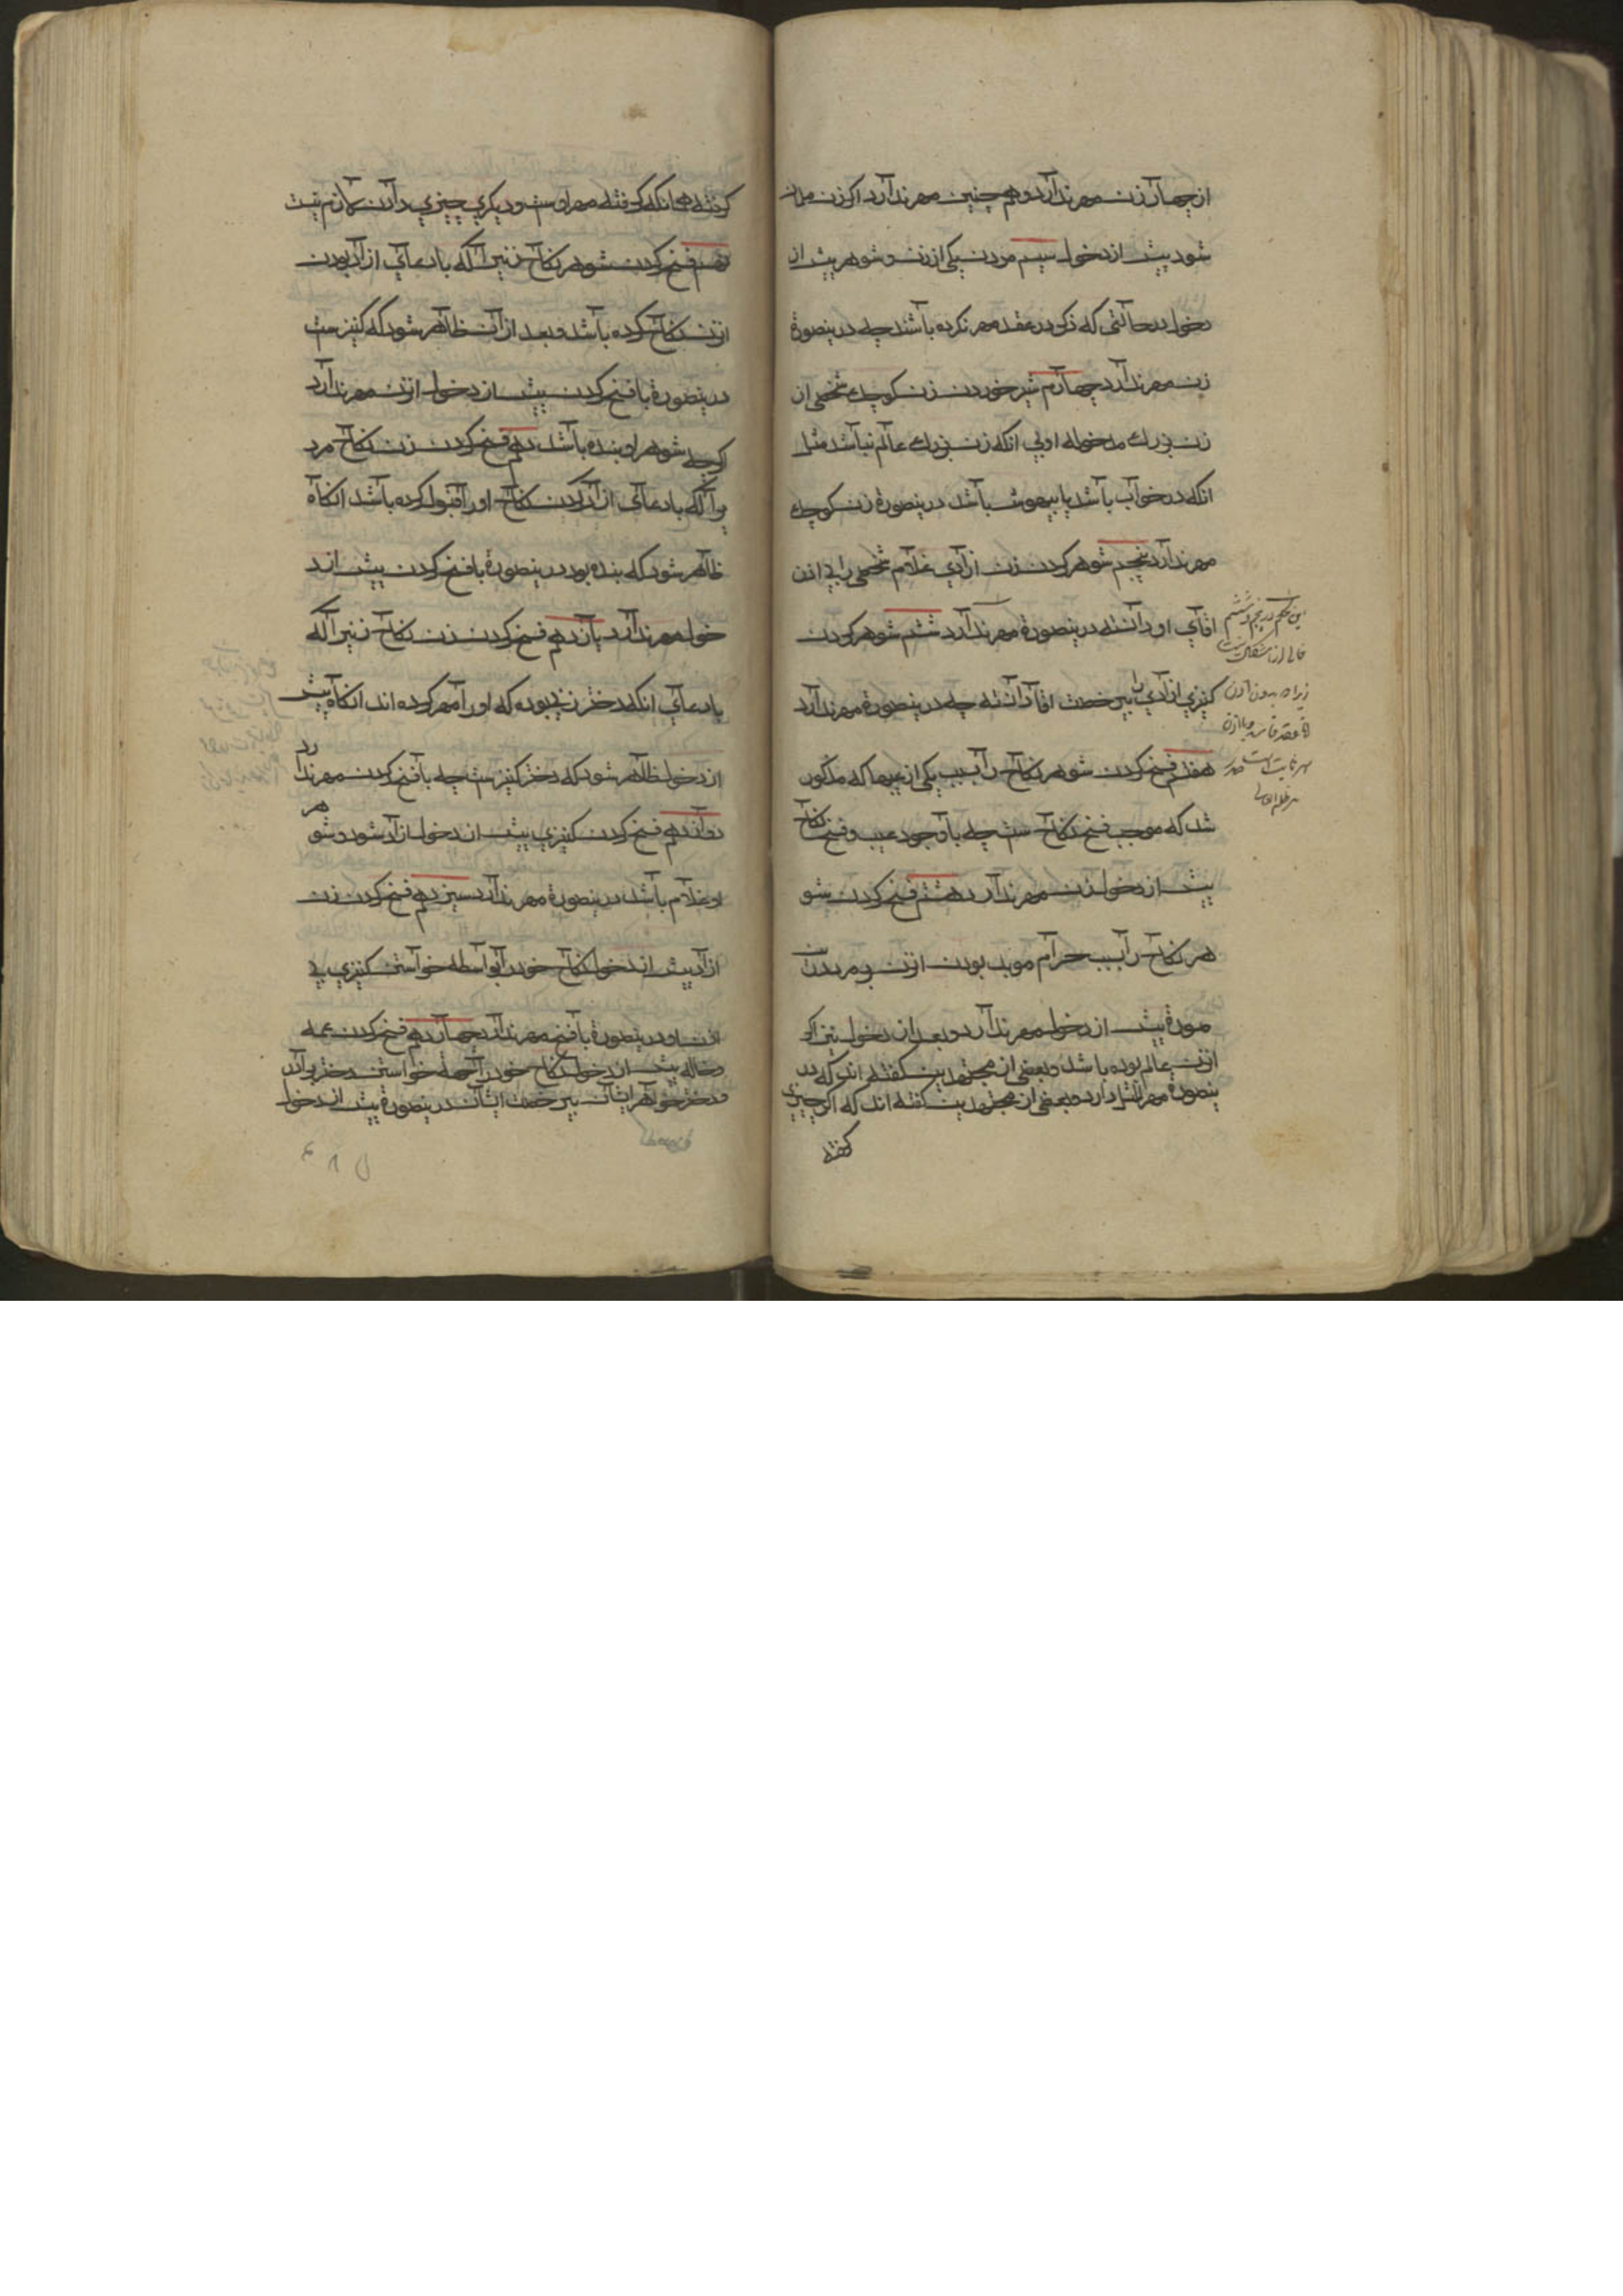 از چهار زن مهر ندارد و هم چنین مهر ندارد اگر زن
شود پیش از دخول سیم مردن یکی از زن و شوهر پیش از
دخول در حالتی که ذکر در عقد مهر نکرده باشند چه درینصورة
زن مهر ندارد چهارم شیر خوردن زن کوچک شخصی از
زن بزرك مدخوله او بی آنکه زن بزرك عالم نباشد مثل
آنکه در خواب باشد یا بیهوش باشد درینصورة زن کوچك
مهر ندارد پنجم شوهر کردن زن ازادی غلام شخصی را بی اذن
اقای او دانسته درینصورة مهر ندارد ششم شوهر کردن
کنیزی ازادی را بیرخصت اقا دانسته چه درینصورة مهر ندارد
هفتم فسخ کردن شوهر نکاح را بسبب یکی از عیبها که مذکور
شد که موجب فسخ نکاح ست چه باوجود عیب و فسخ نکاح
پیش از دخول زن مهر ندارد هشتم فسخ کردن شو
هر نکاح را بسبب حرام موبد بودن ازن بر مرد درین
صورة پیش از دخول مهر ندارد و بعد از دخول نیز اگر
ازن عالم بوده باشد و بعضی از مجتهدین گفته اند که در
ینصورة مهر المثل دارد و بعضی از مجتهدین گفته اند که اگر چیزی
گرفته
این حکم در پنجم و ششم
خالی از اشکال نیست
زیرا که بدون اذن
گرفته همانکه گرفته مهر اوست و دیگری چیزی دادن لازم نیست
نهم فسخ کردن شوهر نکاح زنیرا که بادعای ازاد بودن
ازن نکاح کرده باشد و بعد از آن ظاهر شود که کنیز ست
درینصورة با فسخ کردن پیش از دخول ازن مهر ندارد
اگرچه شوهر او بنده باشد دهم فسخ کردن زن نکاح مرد
یرا که بادعای ازاد بودن نکاح او را قبول کرده باشد انکاه
ظاهر شود که بنده بود درینصورة با فسخ کردن پیش از د
خول مهر ندارد یازدهم فسخ کردن زن نکاح زنیرا که
بادعای انکه دختر زنی بوده که او را مهر کرده اند انکاه پیش
از دخول ظاهر شود که دختر کنیز ست چه با فسخ کردن مهر ندارد
دوازدهم فسخ کردن کنیزی پیش از دخول ازاد شود و شوهر
او غلام باشد درینصورة مهر ندارد سیزدهم فسخ کردن زن
ازاد پیش از دخول نکاح خود را بواسطه خواستن کنیزی بی
اذن او درینصورة با فسخ مهر ندارد چهاردهم فسخ کردن عمه
و خاله پیش از دخول نکاح خود را بجهة خواستن دختر برادر
و دختر خواهر ایشان بیرخصت ایشان درینصورة پیش از دخول